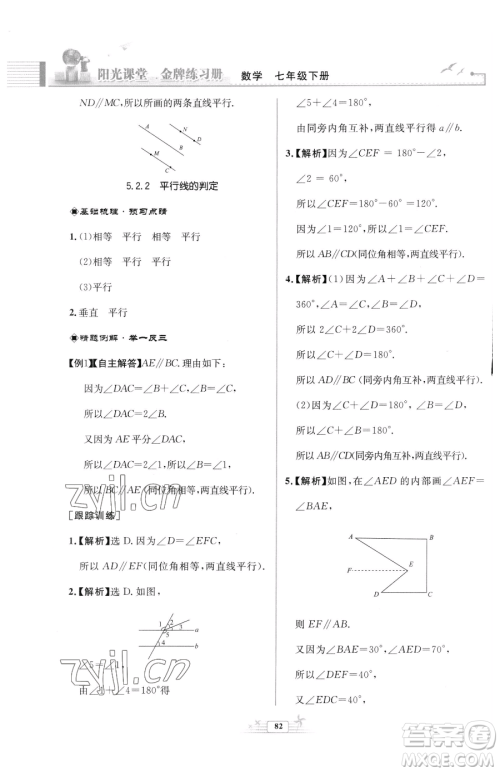 阳光课堂 金牌练习册 数学 七年级下册
ND∥MC,所以所画的两条直线平行.
N
D
M
C
5.2.2 平行线的判定
基础梳理·预习点睛
1.(1)相等 平行 相等 平行
(2)相等 平行
(3)平行
2.垂直 平行
精题例解·举一反三
【例1】【自主解答】AE∥BC.理由如下:
因为∠DAC=∠B+∠C,∠B=∠C,
所以∠DAC=2∠B.
又因为 AE平分∠DAC,
所以∠DAC=2∠1,所以∠B=∠1,
所以BC∥AE(同位角相等,两直线平行).
[跟踪训练]
1.【解析】选 D.因为∠D=∠EFC,
所以 AD∥BF(同位角相等,两直线平行).
2.【解析】选 D.如图,
1
2
3
5
4
a
b
∠5=∠1,
因为∠2+∠4=180°得
∠5+∠4=180°,
由同旁内角互补,两直线平行得 a∥b.
3.【解析】因为∠CEF=180°-∠2,
∠2=60°,
所以∠CEF=180°-60°=120°.
又因为∠C=120°,所以∠CEF=∠C,
所以 AB∥CD(同位角相等,两直线平行).
4.【解析】(1)因为∠A+∠B+∠C+∠D=
360°,∠A=∠C,∠B=∠D,
所以 2∠C+2∠D=360°.
所以∠C+∠D=180°.
所以 AD∥BC(同旁内角互补,两直线平行).
(2)因为∠C+∠D=180°,∠B=∠D,
所以∠B+∠C=180°.
所以 AB∥CD(同旁内角互补,两直线平行).
5.【解析】如图,在∠AED的内部画∠AEF=
∠BAE,
A
B
F
E
D
C
则 EF∥AB.
又因为∠BAE=30°,∠AED=70°,
所以∠AEF=30°,∠DEF=40°,
又因为∠CDE=40°,
82
zyjl.cn
zyjl.cn